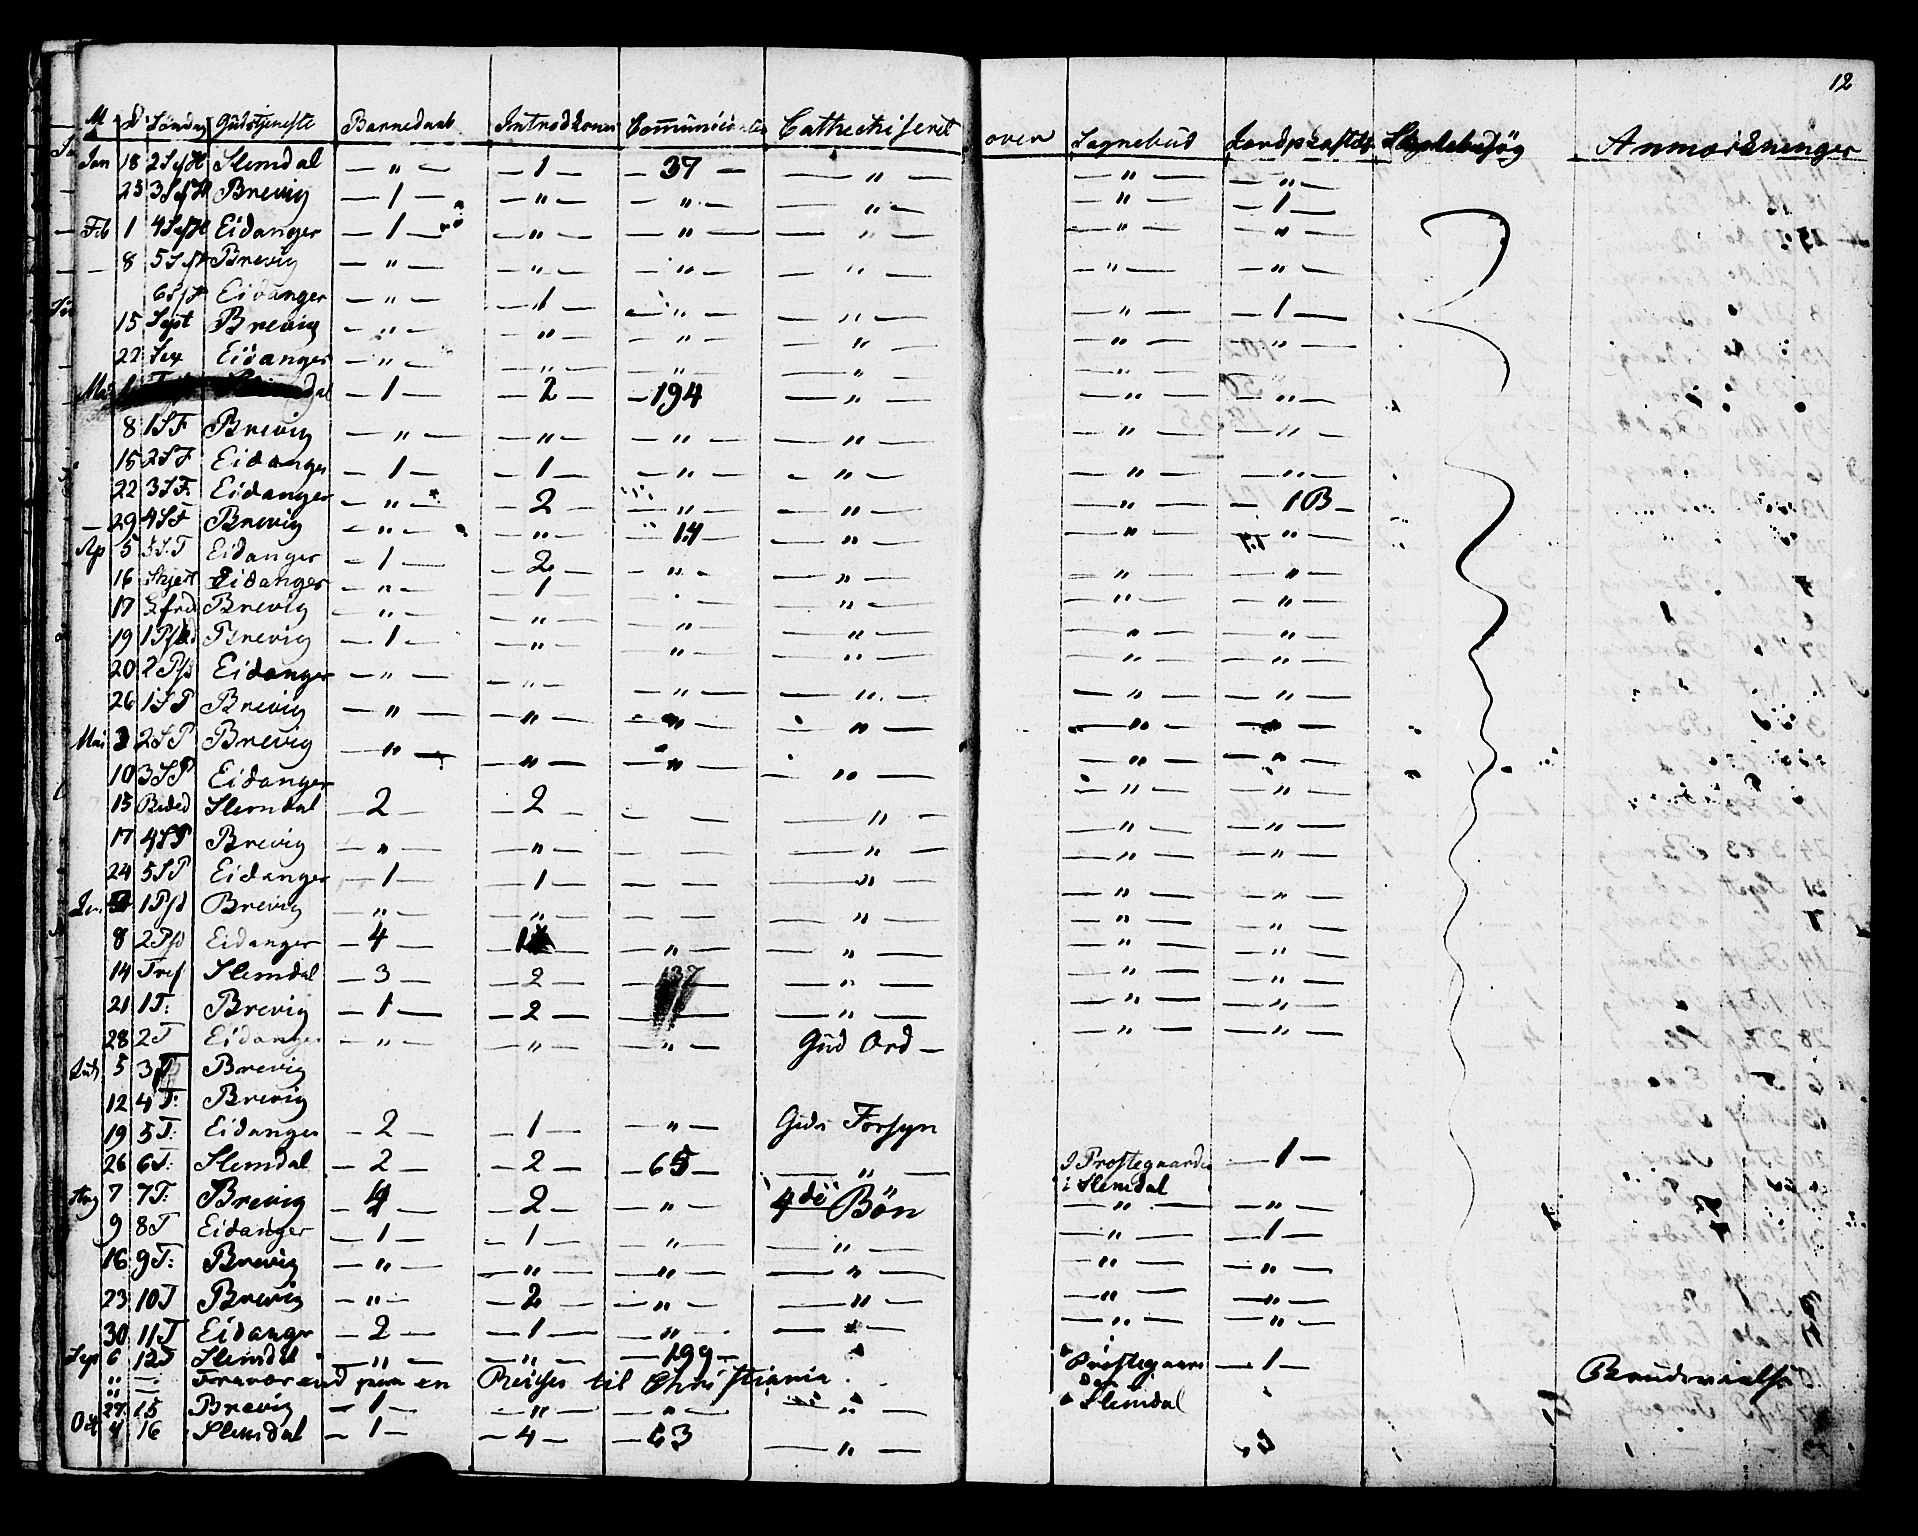 12
M D Søndag Gudstjeneste Barnedaab Introd koner Communicanter Cathechiseret over Sognebud Jordpkastelse Anmærkninger
Jan 18 2 S e f H Slemdal — " — — 1 — — 37 — — " — — " — — " —
25 3 S e f H Brevig — 1 — — " — — " — — " — — " — — 1 —
Feb 1 4 S e f H Eidanger — 1 — — " — — " — — " — — " — — " —
8 5 S f H Brevig — " — — " — — " — — " — — " — — " —
6 S f H Eidanger — " — — 1 — — " — — " — — " — — 1 —
15 Sept Brevig — " — — " — — " — — " — — " —
22 Sex Eidanger — " — — " — — " — — " — — " — — " —
— 1 — — 2 — — 194 — " — — " — — " —
8 1 S F Brevig — " — — " — — " — — " — — " — — " —
15 2 S F Eidanger — 1 — — 1 — — " — — " — — " — — " —
22 3 S F. Eidanger — " — — 2 — — " — — " — — " — — 1 B —
29 4 S F Brevig — " — — " — 14 — " — — " — — " —
Ap 5 5 S. F Eidanger — 1 — — 2 — — " — — " — — " — — " —
16 Skjert Eidanger — " — — 1 — — " — — " — — " —
17 Brevig — " — — " — — " — — " — — " — — " —
19 1 Psd Brevig — 1 — — " — — " — — " — — " — — " —
20 2 Psd Eidanger — " — — " — — " — — " — — " — — " —
26 1 S P Brevig — " — — " — — " — — " — — " — — " —
Mai 3 2 S P Brevig — " — — " — — " — — " — — " — — " —
10 3 S P Eidanger
15 Beded Slemdal — 2 — — 2 — — — — " — — " — — " —
17 4 S P Brevig — " — — " — — — — " — — " — — " —
24 5 S P Eidanger — 1 — — 1 — — — — " — — " — — " —
1 Psd Brevig — " — — " — — — — " — — " — — " —
8 2 Psd Eidanger — 4 — — " — — " — — " — — " —
14 Tref Slemdal — 3 — — 2 — 137 — " — — " — — " —
21 1 T: Brevig — 1 — — 2 — — — — " — — " — — " —
28 2 T Eidanger — " — — " — — " — Gud Ord — — " — — " —
5 3 T Brevig
12 4 T: Brevig
19 5 T: Eidanger — 2 — — 1 — — " — Guds Forsyn
26 6 T: Slemdal — 2 — — 2 — — 65 — — " — i Prostegaarden — 1 —
i Slemdal
Aug 7 7 T: Brevig — 4 — — 2 — — " — 4de Bøn — " — — " —
9 8 T Eidanger — 1 — — 1 — — " — — " — — " — — 1 —
16 9 T: Brevig — " — — " — — " — — " — — " — — " —
23 10 T Brevig — " — — 2 — — " — — " — — " — — " —
30 11 T Eidangr — 2 — — 1 — — " — — " — — " — — " —
Sep 6 12 T Slemdal — " — — " — — 199 — Prostegaar — 1 —
den
" — Fraværend paa en Reise til Christiania
27 15 Brevig — 1 — — " — — " — — " — Slemdal
Oct 4 16 Slemdal — 1 — — 4 — — 63 — " —